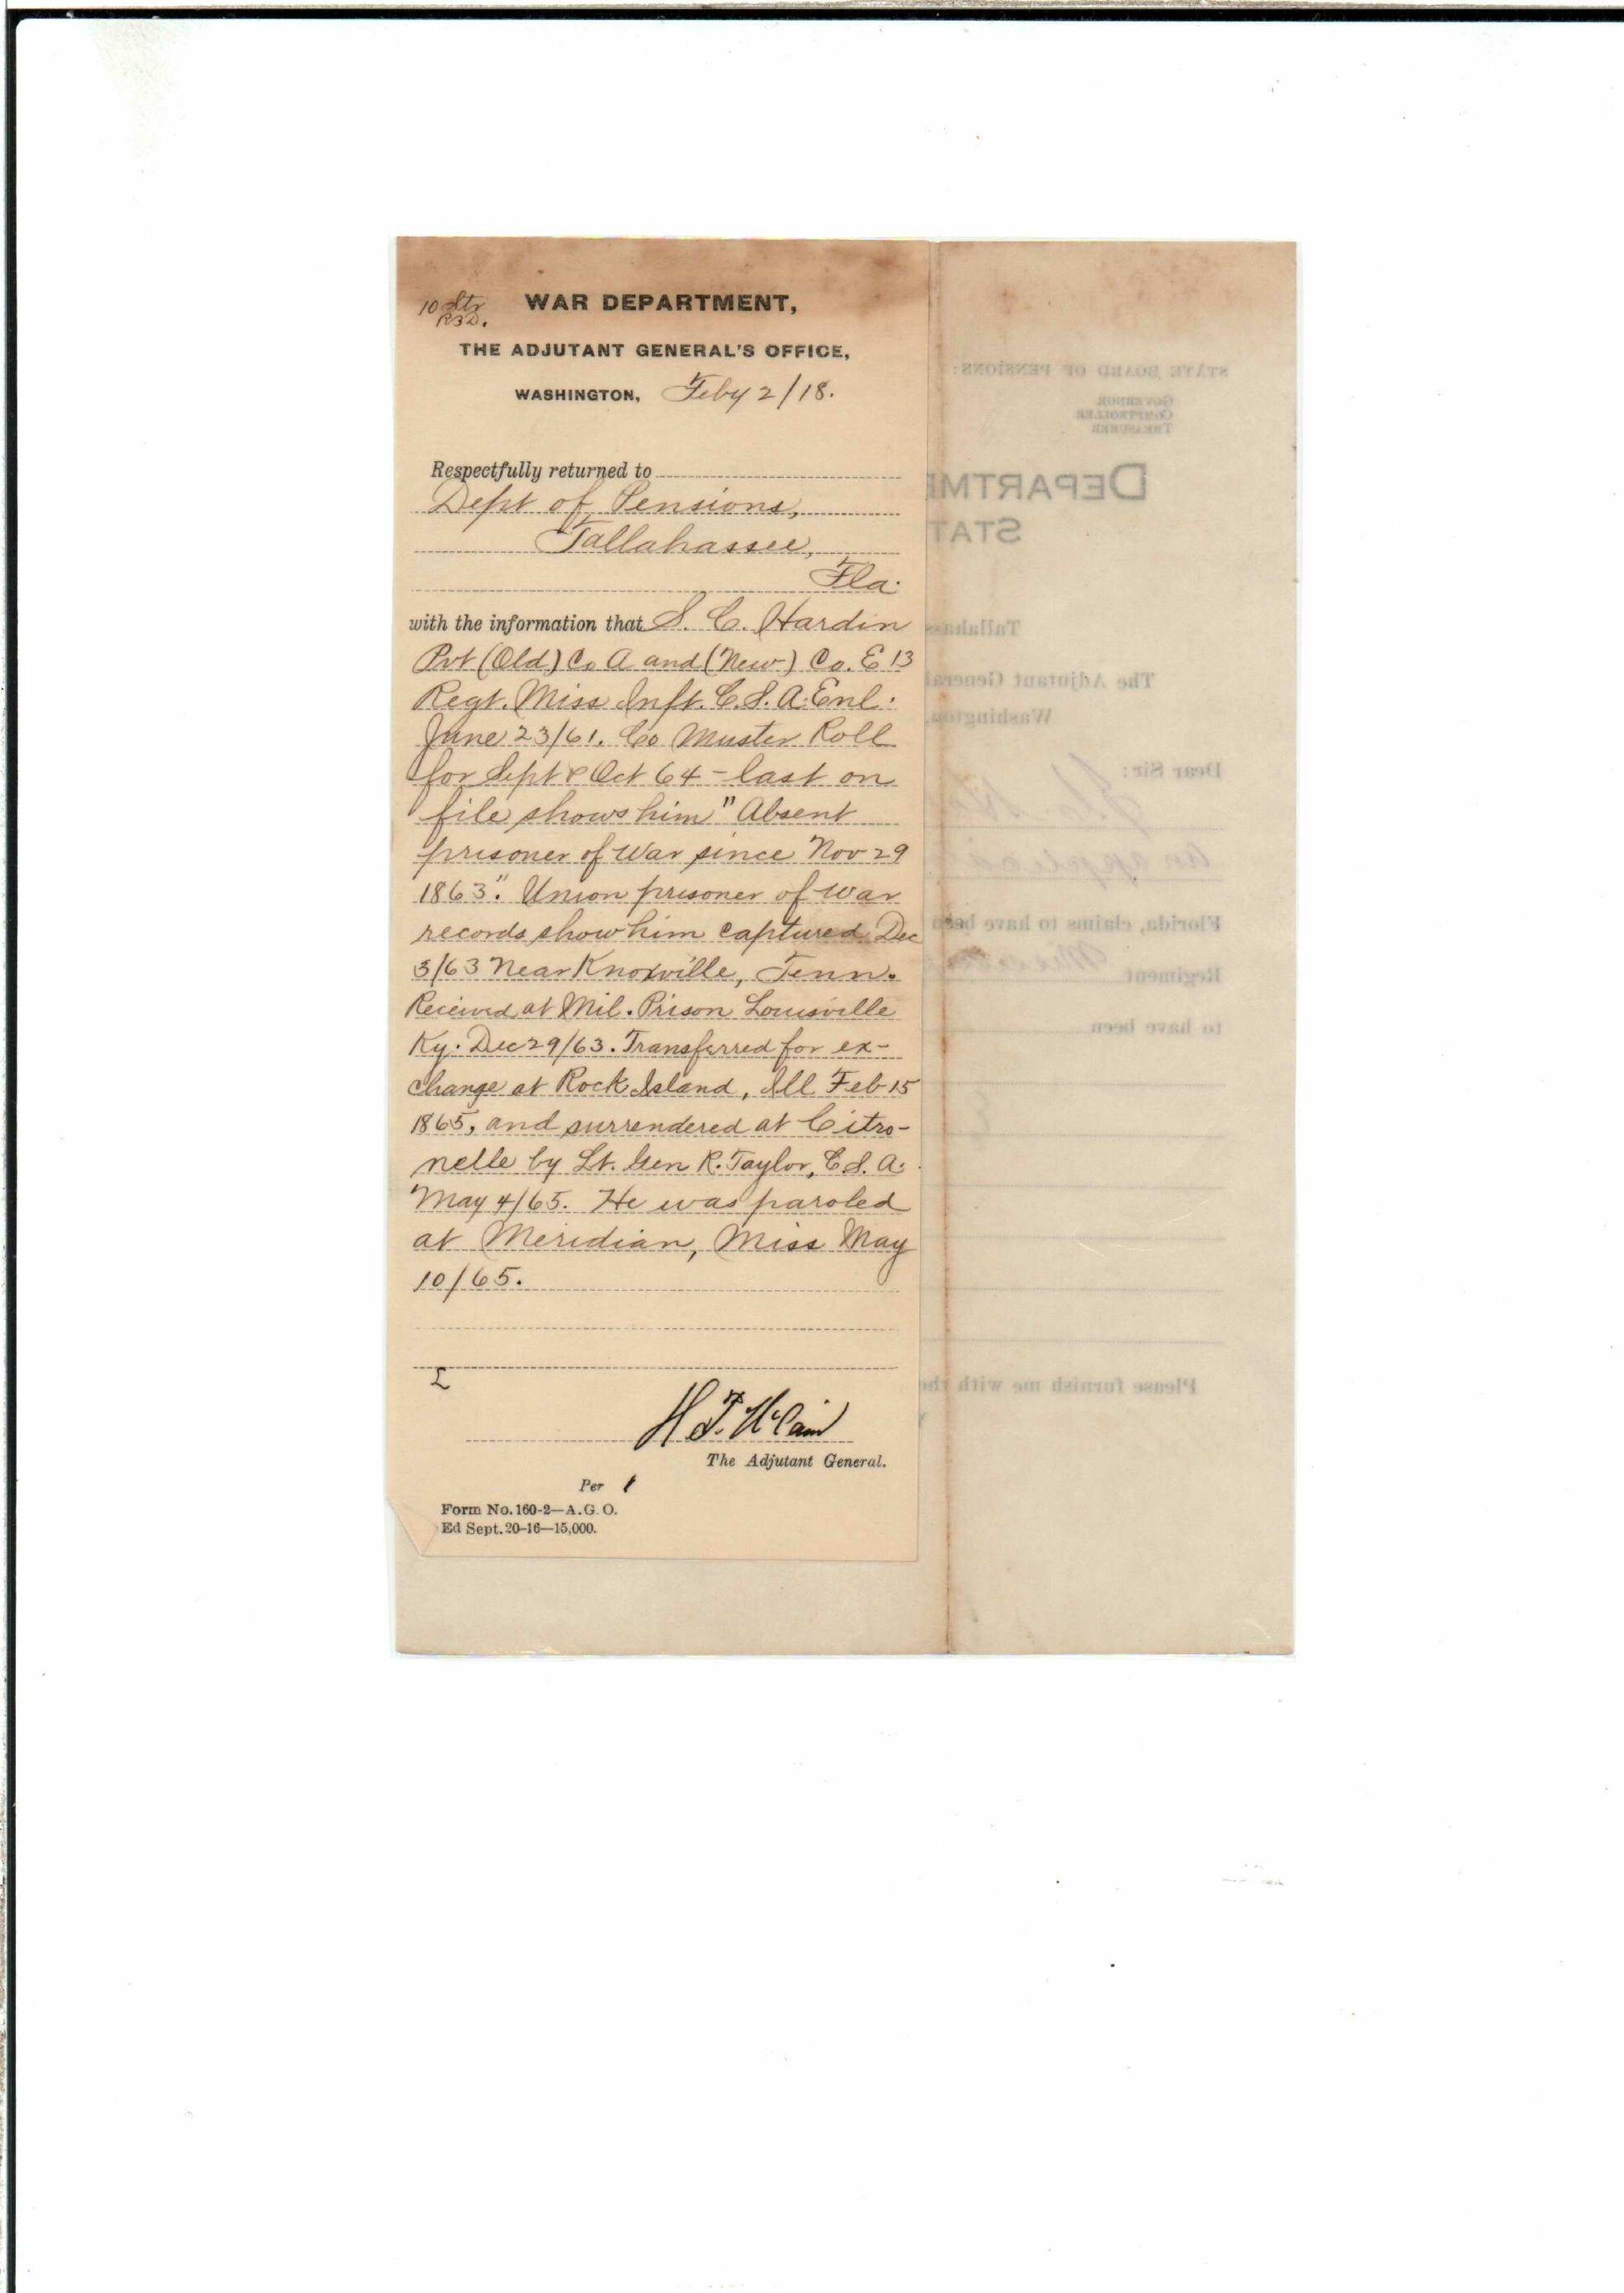 WAR DEPARTMENT,
THE ADJUTANT GENERAL'S OFFICE,
WASHINGTON, Feby 2/18.
Respectfully returned to
Dept of Pensions,
Tallahassee,
Fla.
with the information that S. C. Hardin
Pvt (Old) Co A and (New) Co. E 13
Regt. Miss Inft. C. S. A. Enl.
June 23/61. Co Muster Roll
for Sept & Oct 64 - last on
file shows him "Absent
prisoner of War since Nov 29
1863". Union prisoner of war
records show him captured Dec
3/63 Near Knoxville, Tenn.
Received at Mil. Prison Louisville
Ky. Dec 29/63. Transferred for ex-
change at Rock Island, Ill Feb 15
1865, and surrendered at Citro-
nelle by Lt. Gen R. Taylor, C. S. A.
May 4/65. He was paroled
at Meridian, Miss May
10/65.
H. P. McCain
The Adjutant General.
Per
Form No. 160-2—A. G. O.
Ed Sept. 20-16—15,000.
STATE BOARD OF PENSIONS:
GOVERNOR
COMPTROLLER
TREASURER
DEPARTME
STAT
Tallahass
The Adjutant General
Washington,
Dear Sir:
Florida, claims to have been
Regiment
to have been
Please furnish me with the